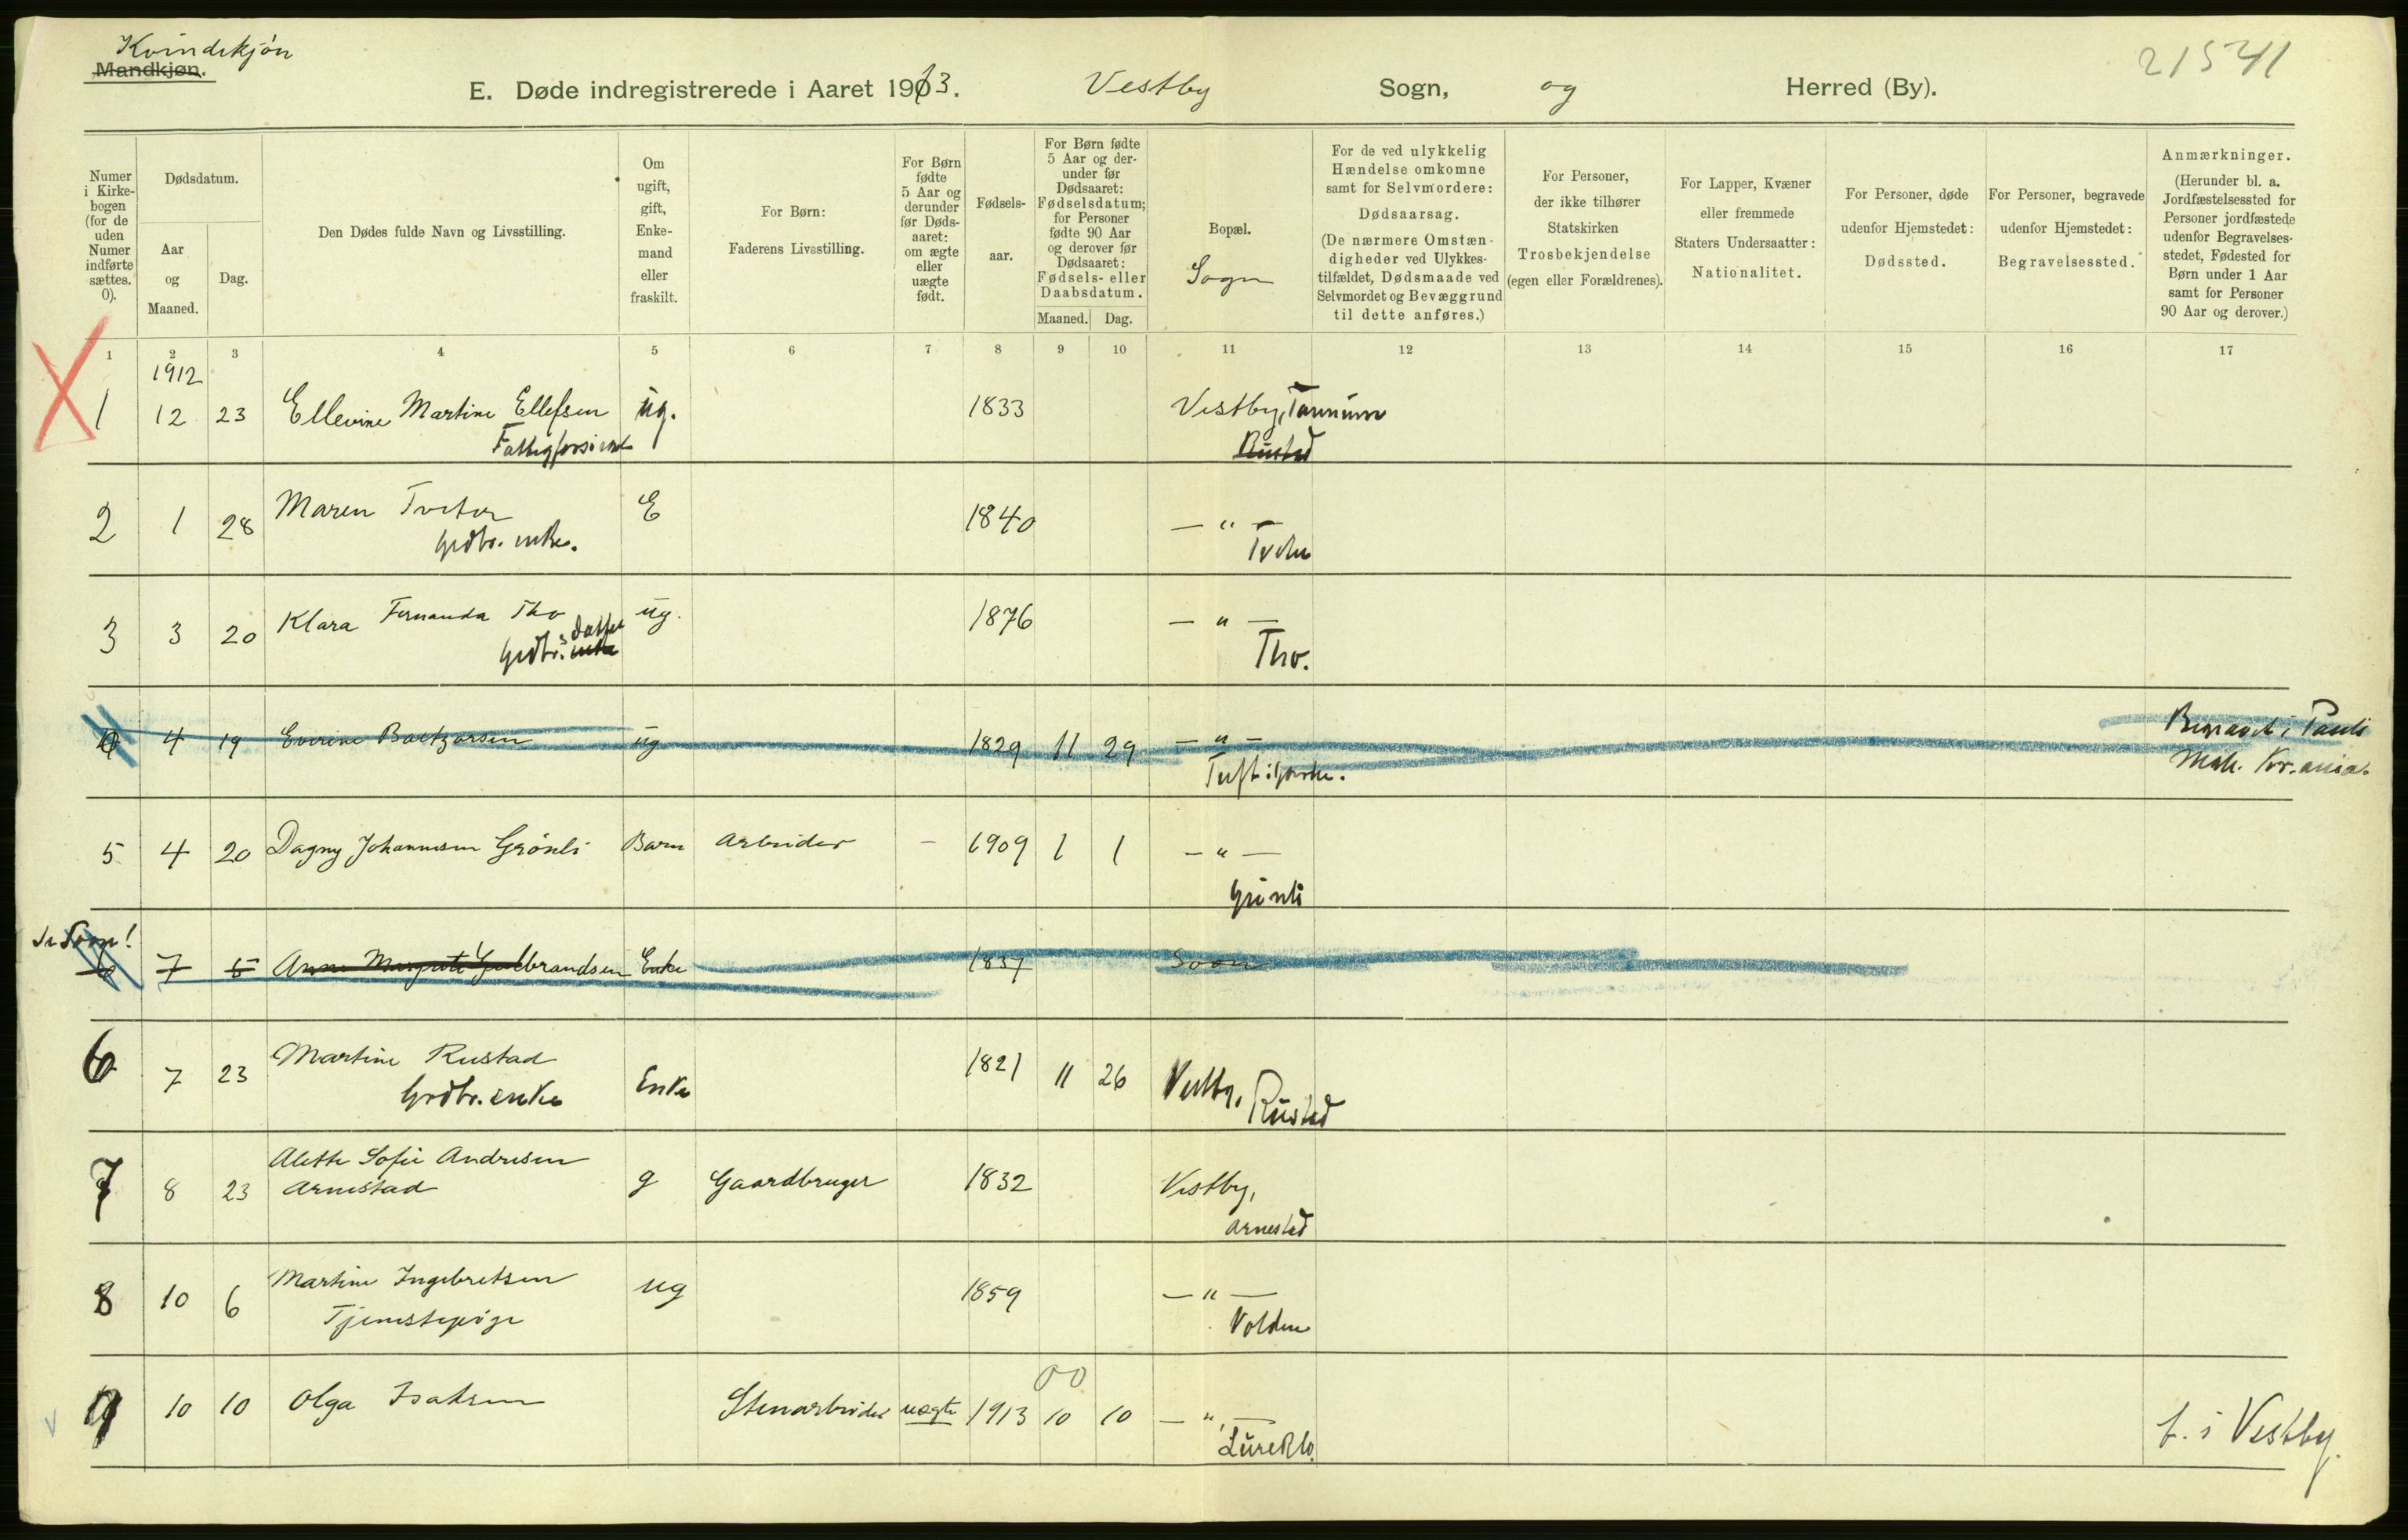 Kvindekjøn
Mandkjøn.
21541
E. Døde indregistrerede i Aaret 1913. Vestby Sogn, og Herred (By).
Numer i Kirkebogen (for de uden Numer indførte sættes. 0).
Dødsdatum.
Aar og Maaned.
Dag.
Den Dødes fulde Navn og Livsstilling.
Om ugift, gift, Enkemand eller fraskilt.
For Børn: Faderens Livsstilling.
For Børn fødte 5 Aar og derunder før Dødsaaret: om ægte eller uægte født.
Fødselsaar.
For Børn fødte 5 Aar og derunder før Dødsaaret: Fødselsdatum; for Personer fødte 90 Aar og derover før Dødsaaret: Fødsels- eller Daabsdatum.
Maaned. Dag.
Bopæl.
Sogn
For de ved ulykkelig Hændelse omkomne samt for Selvmordere: Dødsaarsag. (De nærmere Omstændigheder ved Ulykkestilfældet, Dødsmaade ved Selvmordet og Bevæggrund til dette anføres.)
For Personer, der ikke tilhører Statskirken Trosbekjendelse (egen eller Forældrenes).
For Lapper, Kvæner eller fremmede Staters Undersaatter: Nationalitet.
For Personer, døde udenfor Hjemstedet: Dødssted.
For Personer, begravede udenfor Hjemstedet: Begravelsessted.
Anmærkninger. (Herunder bl. a. Jordfæstelsessted for Personer jordfæstede udenfor Begravelsesstedet, Fødested for Børn under 1 Aar samt for Personer 90 Aar og derover.)
1 2 3 4 5 6 7 8 9 10 11 12 13 14 15 16 17
1912
1 12 23 Ellevine Martine Ellefsen ug. 1833 Vestby,
Rustad
2 1 28 Maren Tveter E 1840 — " —
Grdbr. enke.
3 3 20 Klara Fernanda Tho ug. 1876 — " —
datter
Grdbr.s enke Tho.
4 19 Everine Baltzersen ug 1829 11 29 — " — Begravet i Pauli
5 4 20 Dagny Johannesen Grönli Barn Arbeider - 1909 1 1 — " —
Grönli
Se Soon!
7 5 Anne Margrete Gulbrandsen Enke 1837 Soon
6 7 23 Martine Rustad Enke 1821 11 26 Vestby, Rustad
Grdbr. enke
7 8 23 Alette Sofie Andresen g Gaardbruger 1832 Vestby,
Arnestad Arnestad
8 10 6 Martine Ingebretsen ug 1859 — " —
Tjenestepige Volden
00
9 10 10 Olga Isaksen Stenarbeider uægte 1913 10 10 — " —
f. i Vestby.